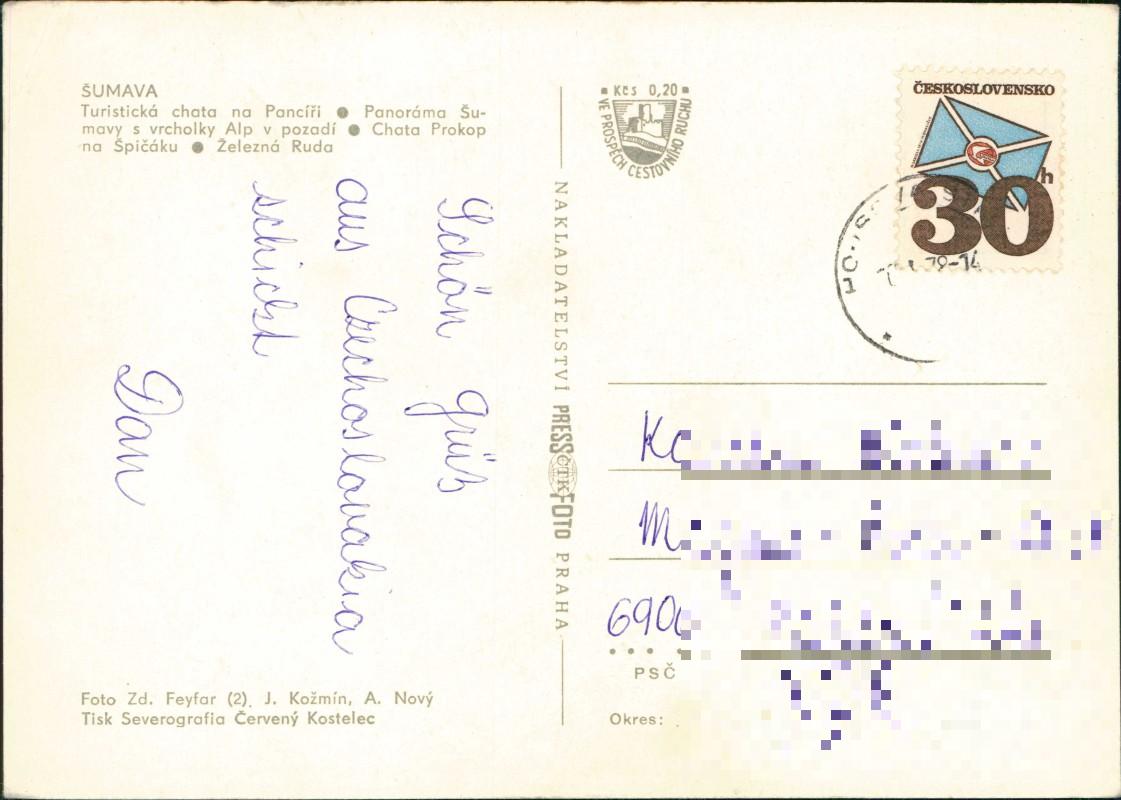 ŠUMAVA
Turistická chata na Pancíři ● Panoráma Šu-
mavy s vrcholky Alp v pozadí ● Chata Prokop
na Špičáku ● Železná Ruda
Schön grüß
aus Czechoslovakia
schickt
Dan
Foto Zd. Feyfar (2), J. Kožmín, A. Nový
Tisk Severografia Červený Kostelec
NAKLADATELSTVÍ PRESSFOTO PRAHA
ČTK
Kčs 0,20
VE PROSPĚCH CESTOVNÍHO RUCHU
ČESKOSLOVENSKO
30h
79-14
PSČ
Okres: